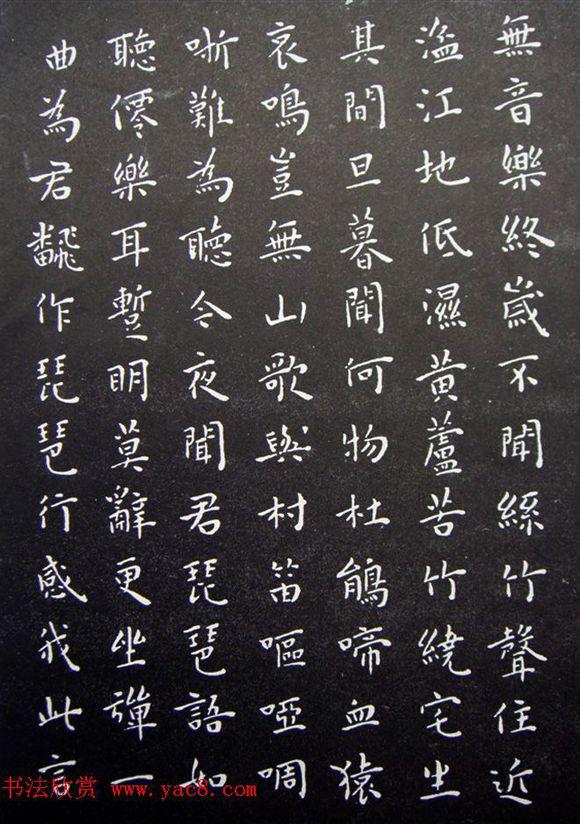 無音樂終歲不聞絲竹聲住近
湓江地低濕黃蘆苦竹繞宅生
其間旦暮聞何物杜鵑啼血猿
哀鳴豈無山歌與村笛嘔啞啁
哳難為聽今夜聞君琵琶語如
聽僊樂耳暫明莫辭更坐彈一
曲為君飜作琵琶行感我此言
书法欣赏 www.yac8.com